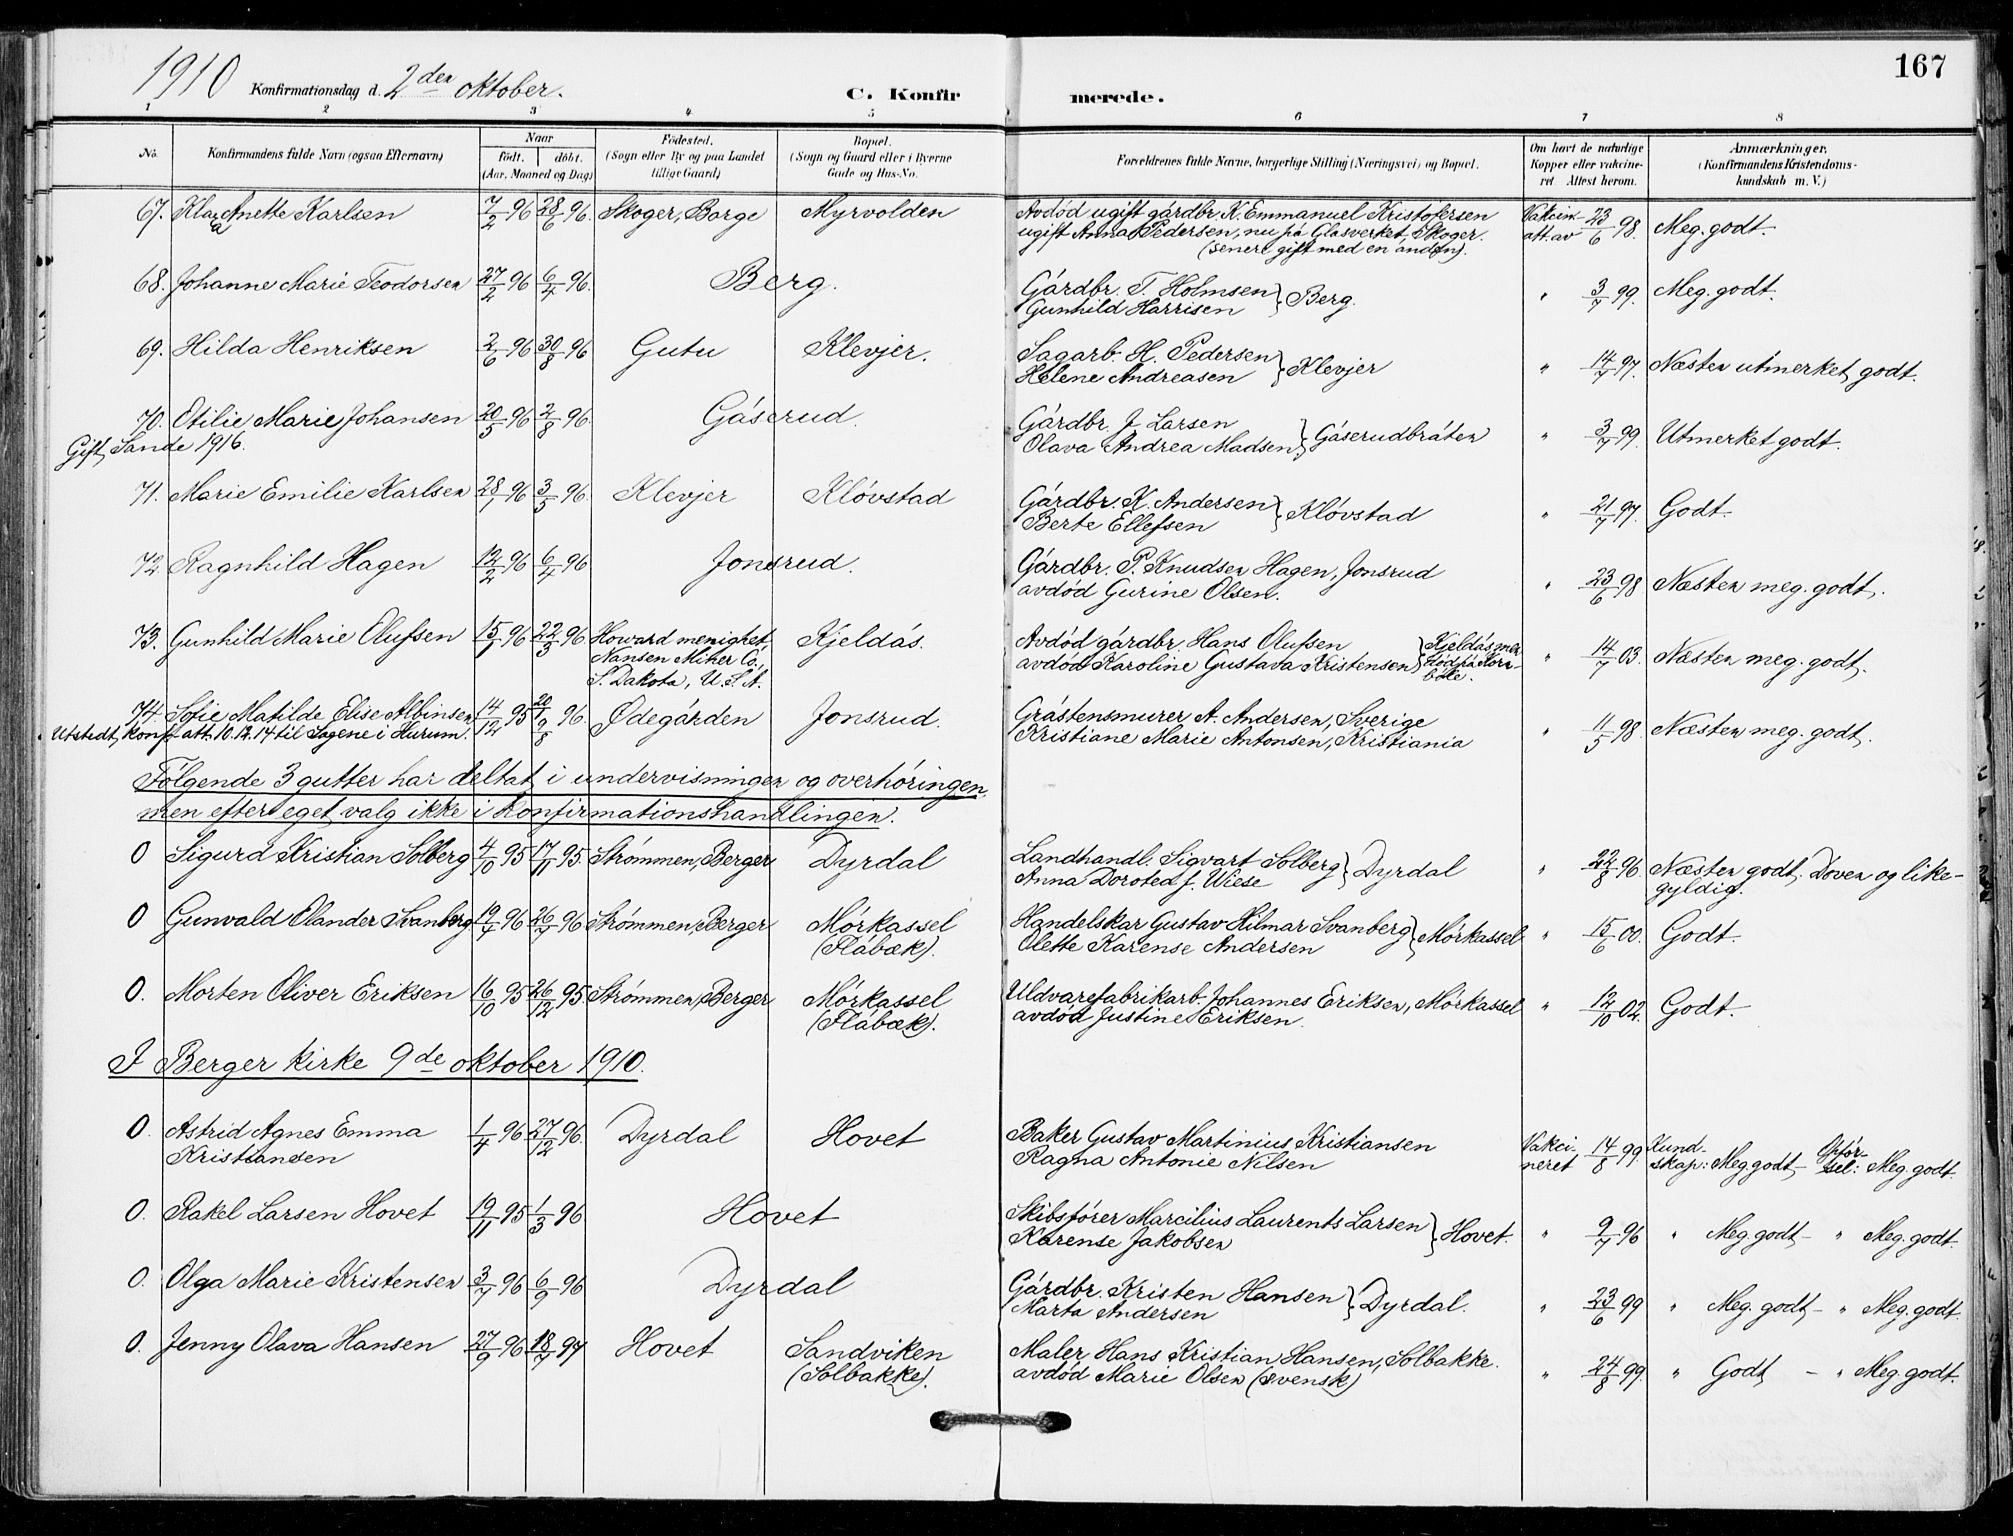 167
1910 Konfirmationsdag d. 2den oktober. C. Konfirmerede.
1 2 3 4 5 6 7 8
No. Konfirmandens fulde Navn (ogsaa Efternavn) Naar født. døbt. (Aar, Maaned og Dag) Fødested. (Sogn eller By og paa Landet tillige Gaard) Bopæl. (Sogn og Gaard eller i Byerne Gade og Hus-No. Forældrenes fulde Navne, borgerlige Stilling (Næringsvei) og Bopæl. Om havt de naturlige Kopper eller vakcineret. Attest herom. Anmærkninger. (Konfirmandens Kristendomskundskab m. V.)
67. Klara Anette Karlsen 7/2 96 28/6 96. Skoger, Borge Myrvolden Avdød ugift gårdbr. K. Emmanuel Kristofersen Vakcin- 23/6 98. Meg. godt.
ugift Anna Pedersen, nu på Glasverket Skoger. att. av
(senere gift med en anden).
68. Johanne Marie Teodorsen 27/2 96 6/4 96. Berg. Gårdbr. T. Holmsen } Berg. " 3/7 99. Meg. godt.
Gunhild Harrisen
69. Hilda Henriksen 2/6 96 30/8 96 Gutu Klevjer. Sagarb. H. Pedersen } Klevjer " 14/7 97. Næsten utmerket godt.
Helene Andreasen
70. Otilie Marie Johansen 20/5 96 2/8 96. Gåserud. Gårdbr. J. Larsen } Gåserudbråten " 3/7 99. Utmerket godt.
Gift, Sande 1916. Olava Andrea Madsen
71. Marie Emilie Karlsen 28/1 96 3/5 96. Klevjer Kløvstad Gårdbr. K. Andersen } Kløvstad " 21/7 97. Godt.
Berte Ellefsen
72. Ragnhild Hagen 12/2 96 6/4 96 Jonsrud. Gårdbr. P. Knudsen Hagen, Jonsrud " 23/6 98 Næsten meg. godt.
avdød Gurine Olsen.
73. Gunhild Marie Olufsen 15/1 96 22/3 96 Howard menighet, Kjeldås. Avdød gårdbr. Hans Olufsen } Kjeldås, men " 14/7 03. Næsten meg. godt.
Nansen Miner Co., avdød Karoline Gustava Kristensen
S. Dakota, U. S. A.
74. Sofie Matilde Elise Albinsen 14/12 95 20/8 96. Ødegården Jonsrud. Gråstensmurer A. Andersen, Sverige " 11/5 98. Næsten meg. godt.
Utstedt konf. att. 10.12.14 til Sogne i Hurum. Kristiane Marie Antonsen, Kristiania
Følgende 3 gutter har deltat i undervisningen og overhøringen,
men efter eget valg ikke i konfirmationshandlingen.
0 Sigurd Kristian Solberg 4/10 95 17/11 95. Strømmen, Berger Dyrdal Landhandl. Sigvart Solberg } Dyrdal " 22/8 96. Næsten godt. Doven og like-
Anna Dorotea f. Wiese gyldig.
0 Gunvald Elander Svanberg 19/4 96 26/7 96 Strømmen, Berger Mørkassel Handelskar Gustav Hilmar Svanberg } Mørkassel " 15/6 00. Godt.
(Flåbæk). Olette Karense Andersen
0. Morten Oliver Eriksen 16/10 95 26/12 95 Strømmen, Berger Mørkassel Uldvarefabrikarb. Johannes Eriksen, Mørkassel " 12/10 02. Godt.
(Flåbæk). avdød Justine Eriksen.
I Berger kirke 9de oktober 1910.
0. Astrid Agnes Emma 1/4 96 27/12 96. Dyrdal Hovet Baker Gustav Martinius Kristiansen Vakci- 14/8 99 Kund- Opfør-
Kristiansen Ragna Antonie Nilsen neret skap: Meg. godt – sel: Meg. godt.
0. Rakel Larsen Hovet 19/11 95 1/3 96 Hovet Skibsfører Marcilius Laurents Larsen } Hovet. " 9/7 96 " Meg. godt – " Meg. godt.
Karense Jakobsen
0. Olga Marie Kristensen 3/7 96 6/9 96 Dyrdal Gårdbr. Kristen Hansen } Dyrdal. " 23/6 99 " Meg. godt – " Meg. godt.
Marta Andersen
0. Jenny Olava Hansen 27/9 96 18/7 97 Hovet Sandviken Maler Hans Kristian Hansen, Solbakke. " 24/8 99. " Godt – " Meg. godt.
(Solbakke). avdød Marie Olsen (svensk)